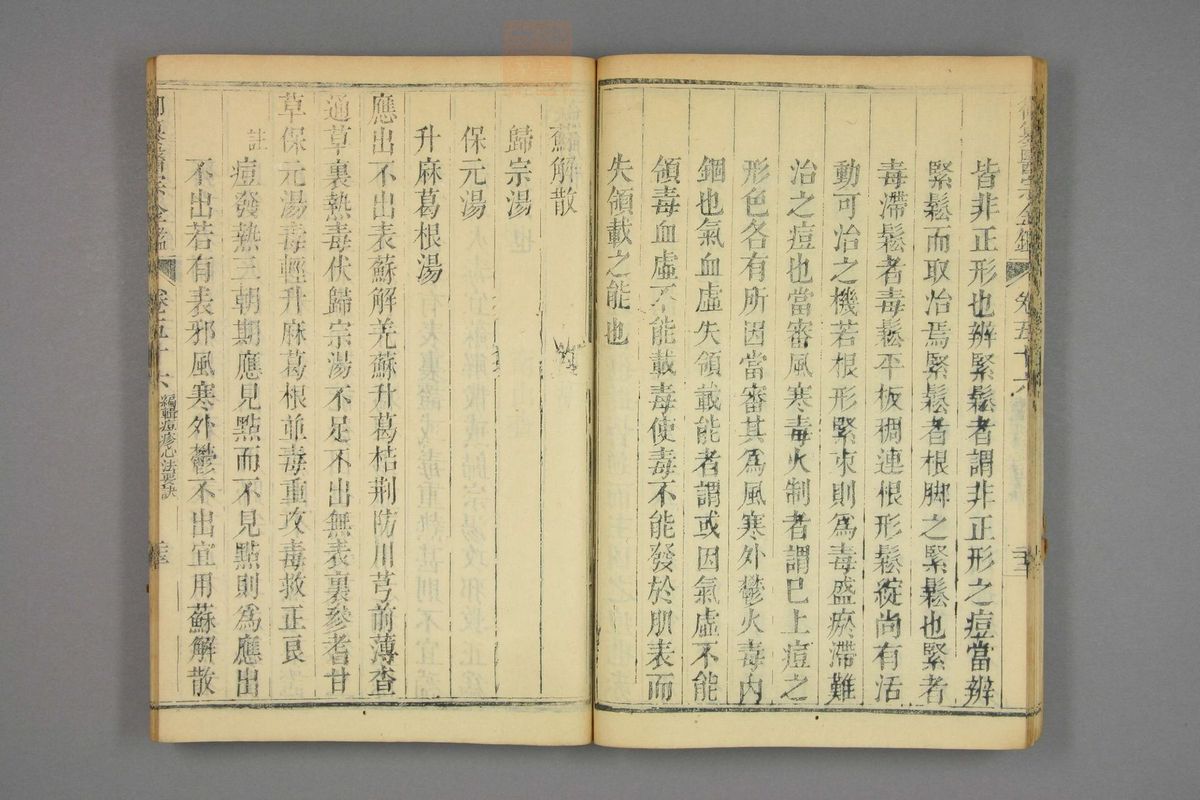 皆非正形也辨緊鬆者謂非正形之痘當辨
緊鬆而取治焉緊鬆者根脚之緊鬆也緊者
毒滯鬆者毒鬆平板稠連根形鬆綻尚有活
動可治之機若根形緊束則為毒盛瘀滯難
治之痘也當審風寒毒火制者謂巳上痘之
形色各有所因當審其為風寒外鬱火毒內
錮也氣血虛失領載能者謂或因氣虛不能
領毒血虛不能載毒使毒不能發於肌表而
失領載之能也
蘇解散
歸宗湯
保元湯
升麻葛根湯
應出不出表蘇解羌蘇升葛桔荆防川芎前薄查
通草裏熱毒伏歸宗湯不足不出無表裏參耆甘
草保元湯毒輕升麻葛根並毒重攻毒救正良
註
痘發熱三朝期應見點而不見點則為應出
不出若有表邪風寒外鬱不出宜用蘇解散
卷五十六
編輯痘疹心法要訣